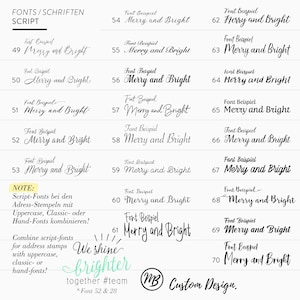 FONTS/SCHRIFTEN
SCRIPT
Font Beispiel
49 Merry and Bright
Font Beispiel
50 Merry and Bright
Font Beispiel
51 Merry and Bright
Font Beispiel
52 Merry and Bright
Font Beispiel
53 Merry and Bright
NOTE:
Script-Fonts bei den
Adress-Stempeln mit
Uppercase, Classic- oder
Hand-Fonts kombinieren!
Combine script-fonts
for address stamps
with uppercase,
classic- or
hand-fonts!
Font Beispiel
54 Merry and Bright
Font Beispiel
55 Merry and Bright
Font Beispiel
56 Merry and Bright
Font Beispiel
57 Merry and Bright
Font Beispiel
58 Merry and Bright
Font Beispiel
59 Merry and Bright
Font Beispiel
60 Merry and Bright
Font Beispiel
61 Merry and Bright
Font Beispiel
62 Merry and Bright
Font Beispiel
63 Merry and Bright
Font Beispiel
64 Merry and Bright
Font Beispiel
65 Merry and Bright
Font Beispiel
66 Merry and Bright
Font Beispiel
67 Merry and Bright
Font Beispiel
68 Merry and Bright
Font Beispiel
69 Merry and Bright
Font Beispiel
70 Merry and Bright
We shine
brighter
together #team
* Font 52 & 20
MB
Custom Design.